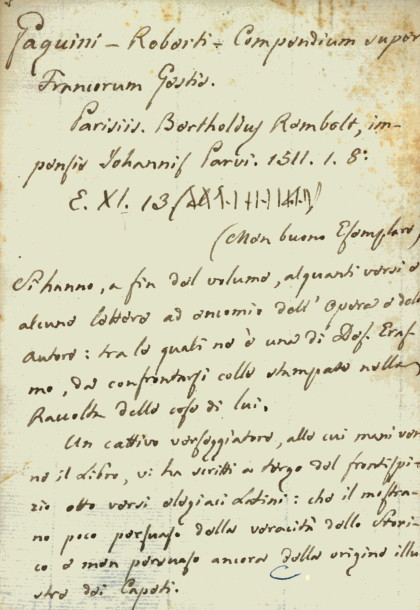 Gaguini - Roberti - Compendium super
Francorum Gestis.
Parisiis. Bertholdus Rembolt, im-
pensis Johannis Parvi. 1511. 1. 8:
E. XI. 13
(Men buono Esemplare)
Si hanno, a fin del volume, alquanti versi e
alcune lettere ad encomio dell' Opera e dello
Autore: tra le quali ne è una di Des. Eras-
mo, da confrontarsi colle stampate nella
Raccolta delle cose di lui.
Un cattivo verseggiatore, alle cui mani ven-
ne il Libro, vi ha scritti a tergo del frontispi-
zio otto versi elegiaci Latini: che il mostra-
no poco persuaso della veracità dello Stori-
co e men persuaso ancora della origine illu-
stre dei Capeti.